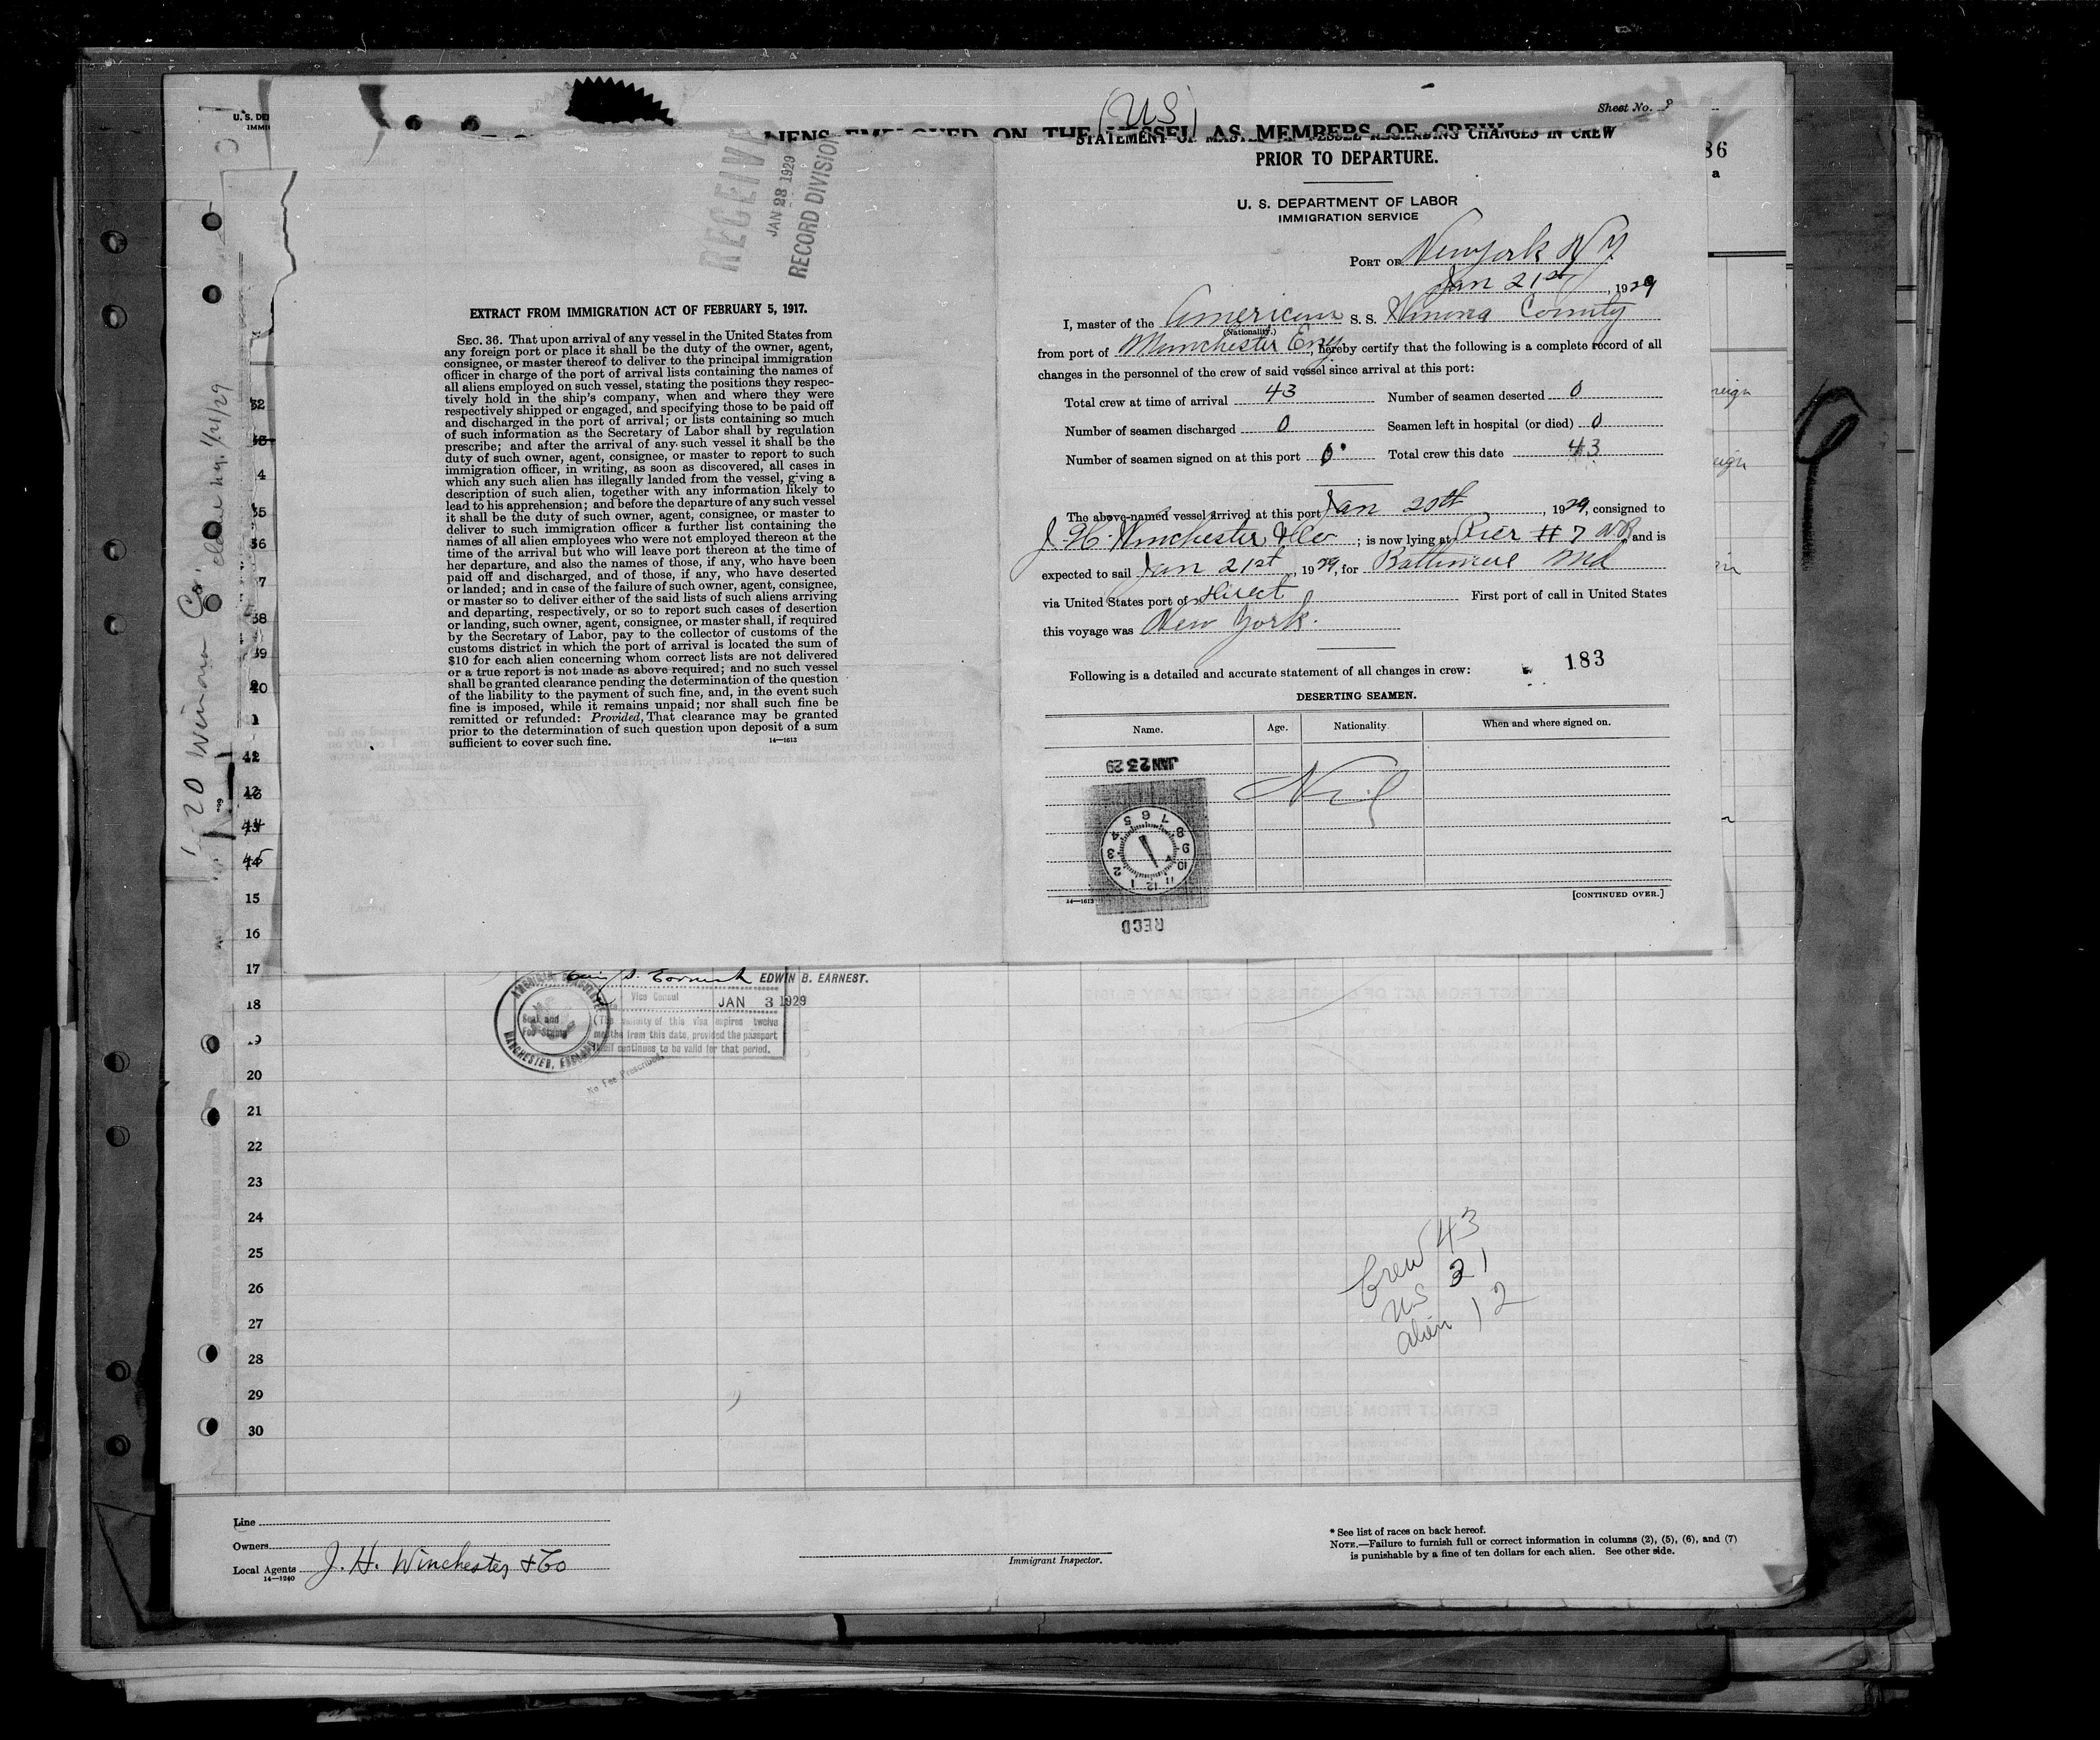 (US)
Sheet No.
U. S. DE
IMMI
ALIENS EMPLOYED ON THE VESSEL AS MEMBERS OF CREW
RECEIVE
JAN 28 1929
RECORD DIVISION
EXTRACT FROM IMMIGRATION ACT OF FEBRUARY 5, 1917.
SEC. 36. That upon arrival of any vessel in the United States from
any foreign port or place it shall be the duty of the owner, agent,
consignee, or master thereof to deliver to the principal immigration
officer in charge of the port of arrival lists containing the names of
all aliens employed on such vessel, stating the positions they respec-
tively hold in the ship's company, when and where they were
respectively shipped or engaged, and specifying those to be paid off
and discharged in the port of arrival; or lists containing so much
of such information as the Secretary of Labor shall by regulation
prescribe; and after the arrival of any such vessel it shall be the
duty of such owner, agent, consignee, or master to report to such
immigration officer, in writing, as soon as discovered, all cases in
which any such alien has illegally landed from the vessel, giving a
description of such alien, together with any information likely to
lead to his apprehension; and before the departure of any such vessel
it shall be the duty of such owner, agent, consignee, or master to
deliver to such immigration officer a further list containing the
names of all alien employees who were not employed thereon at the
time of the arrival but who will leave port thereon at the time of
her departure, and also the names of those, if any, who have been
paid off and discharged, and of those, if any, who have deserted
or landed; and in case of the failure of such owner, agent, consignee,
or master so to deliver either of the said lists of such aliens arriving
and departing, respectively, or so to report such cases of desertion
or landing, such owner, agent, consignee, or master shall, if required
by the Secretary of Labor, pay to the collector of customs of the
customs district in which the port of arrival is located the sum of
$10 for each alien concerning whom correct lists are not delivered
or a true report is not made as above required; and no such vessel
shall be granted clearance pending the determination of the question
of the liability to the payment of such fine, and, in the event such
fine is imposed, while it remains unpaid; nor shall such fine be
remitted or refunded: Provided, That clearance may be granted
prior to the determination of such question upon deposit of a sum
sufficient to cover such fine.
14—1613
STATEMENT OF MASTER OF VESSEL REGARDING CHANGES IN CREW
PRIOR TO DEPARTURE.
U. S. DEPARTMENT OF LABOR
IMMIGRATION SERVICE
PORT OF New York N Y
Jan 21st, 1929
I, master of the American S. S. Winona County
(Nationality.)
from port of Manchester Eng, hereby certify that the following is a complete record of all
changes in the personnel of the crew of said vessel since arrival at this port:
Total crew at time of arrival 43 Number of seamen deserted 0
Number of seamen discharged 0 Seamen left in hospital (or died) 0
Number of seamen signed on at this port 0 Total crew this date 43
The above-named vessel arrived at this port Jan 20th, 1929, consigned to
J. H. Winchester & Co; is now lying at Pier # 7 N.R, and is
expected to sail Jan 21st, 1929, for Baltimore Md
via United States port of Direct First port of call in United States
this voyage was New York.
Following is a detailed and accurate statement of all changes in crew:
183
DESERTING SEAMEN.
Name. Age. Nationality. When and where signed on.
Nil
JAN 23 29
RECD
14—1613
[CONTINUED OVER.]
86
a
reign
eign
1/20 Winona Co. 1/21/29
32
4
35
36
37
38
39
40
15
16
17
18
20
21
22
23
24
25
26
27
28
29
30
EDWIN B. EARNEST.
Vice Consul
JAN 3 1929
(The validity of this visa expires twelve
months from this date, provided the passport
itself continues to be valid for that period.
AMERICAN CONSULATE
MANCHESTER, ENGLAND
Seal and
Fee Stamp
No Fee Prescribed.
Crew 43
US 31
alien 12
Line
Owners
Local Agents J. H. Winchester & Co
14—1240
Immigrant Inspector.
* See list of races on back hereof.
NOTE.—Failure to furnish full or correct information in columns (2), (5), (6), and (7)
is punishable by a fine of ten dollars for each alien. See other side.